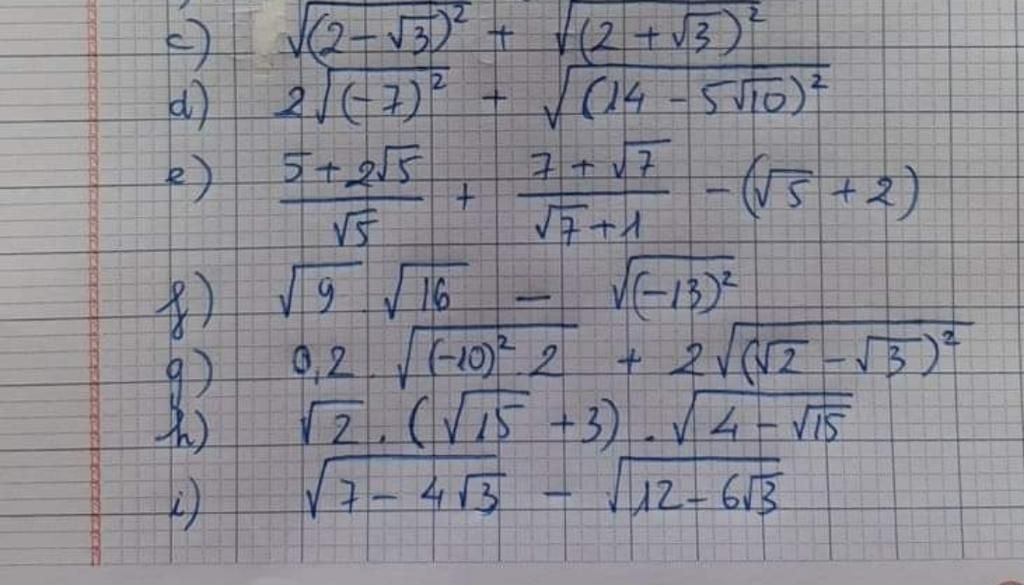 c) √(2−√3)² + √(2+√3)²
d) 2√(−7)² + √(14 − 5√10)²
e) (5+2√5)/√5 + (7+√7)/(√7+1) − (√5 + 2)
f) √9 . √16 − √(−13)²
g) 0,2 . √((−10)² . 2) + 2√(√2 − √3)²
h) √2 . (√15 + 3) . √(4 − √15)
i) √(7 − 4√3) − √(12 − 6√3)